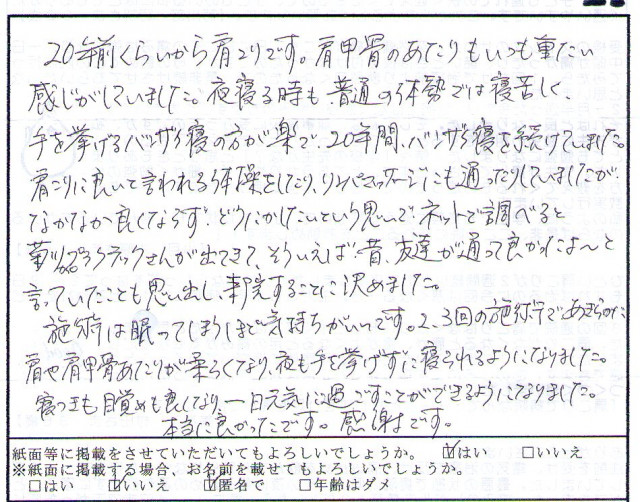 20年前くらいから肩コリです。肩甲骨のあたりもいつも重たい
感じがしていました。夜寝る時も、普通の体勢では寝苦しく、
手を挙げるバンザイ寝の方が楽で、20年間、バンザイ寝を続けていました。
肩こりに良いと言われる体操をしたり、リンパマッサージにも通ったりしていましたが、
なかなか良くならず、どうにかしたいという思いで、ネットで調べると
プラクティックさんが出てきて、そういえば昔、友達が通って良かったよ〜と
言っていたことも思い出し、来院することに決めました。
施術は眠ってしまうほど気持ちがいいです。2、3回の施術であきらかに
肩や肩甲骨あたりが柔らくなり、夜も手を挙げずに寝られるようになりました。
寝つきも目覚めも良くなり、一日元気に過ごすことができるようになりました。
本当に良かったです。感謝です。
紙面等に掲載をさせていただいてもよろしいでしょうか。 ☑はい □いいえ
※紙面に掲載する場合、お名前を載せてもよろしいでしょうか。
□はい ☑いいえ ☑匿名で □年齢はダメ